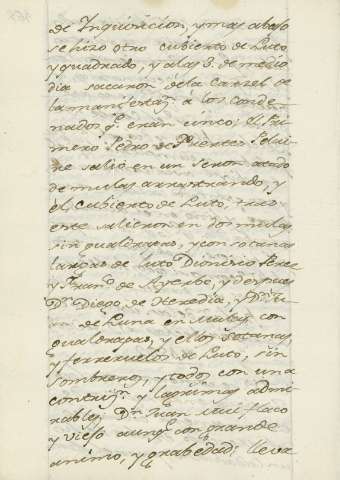 de Inquisicion, y mas abajo
se hizo otro cubierto de Luto
y quadrado, y a las 3. de medio
dia sacaron de la Carzel de
la manifestaz.n a los Conde-
nados q.e eran cinco; el Pri-
mero Pedro de Fuertes Pelai-
re salio en un seron atado
de mulas arrastrando, y
el cubierto de Luto; tras
este salieron en dos mulas
sin gualdrapas, y con sotanas
largas de luto Dionisio Perez
y Fran.co de Ayerbe, y despues
D.n Diego de Heredia, y D.n Ju.n
de Luna en Mulas con
gualdrapas, y ellos sotanas,
y ferreruelos de Luto, sin
sombreros, y todos con una
contriz.n y lagrimas admi-
rables, D.n Juan mui flaco
y viejo aunq.e con grande
animo, y grabedad; lleva